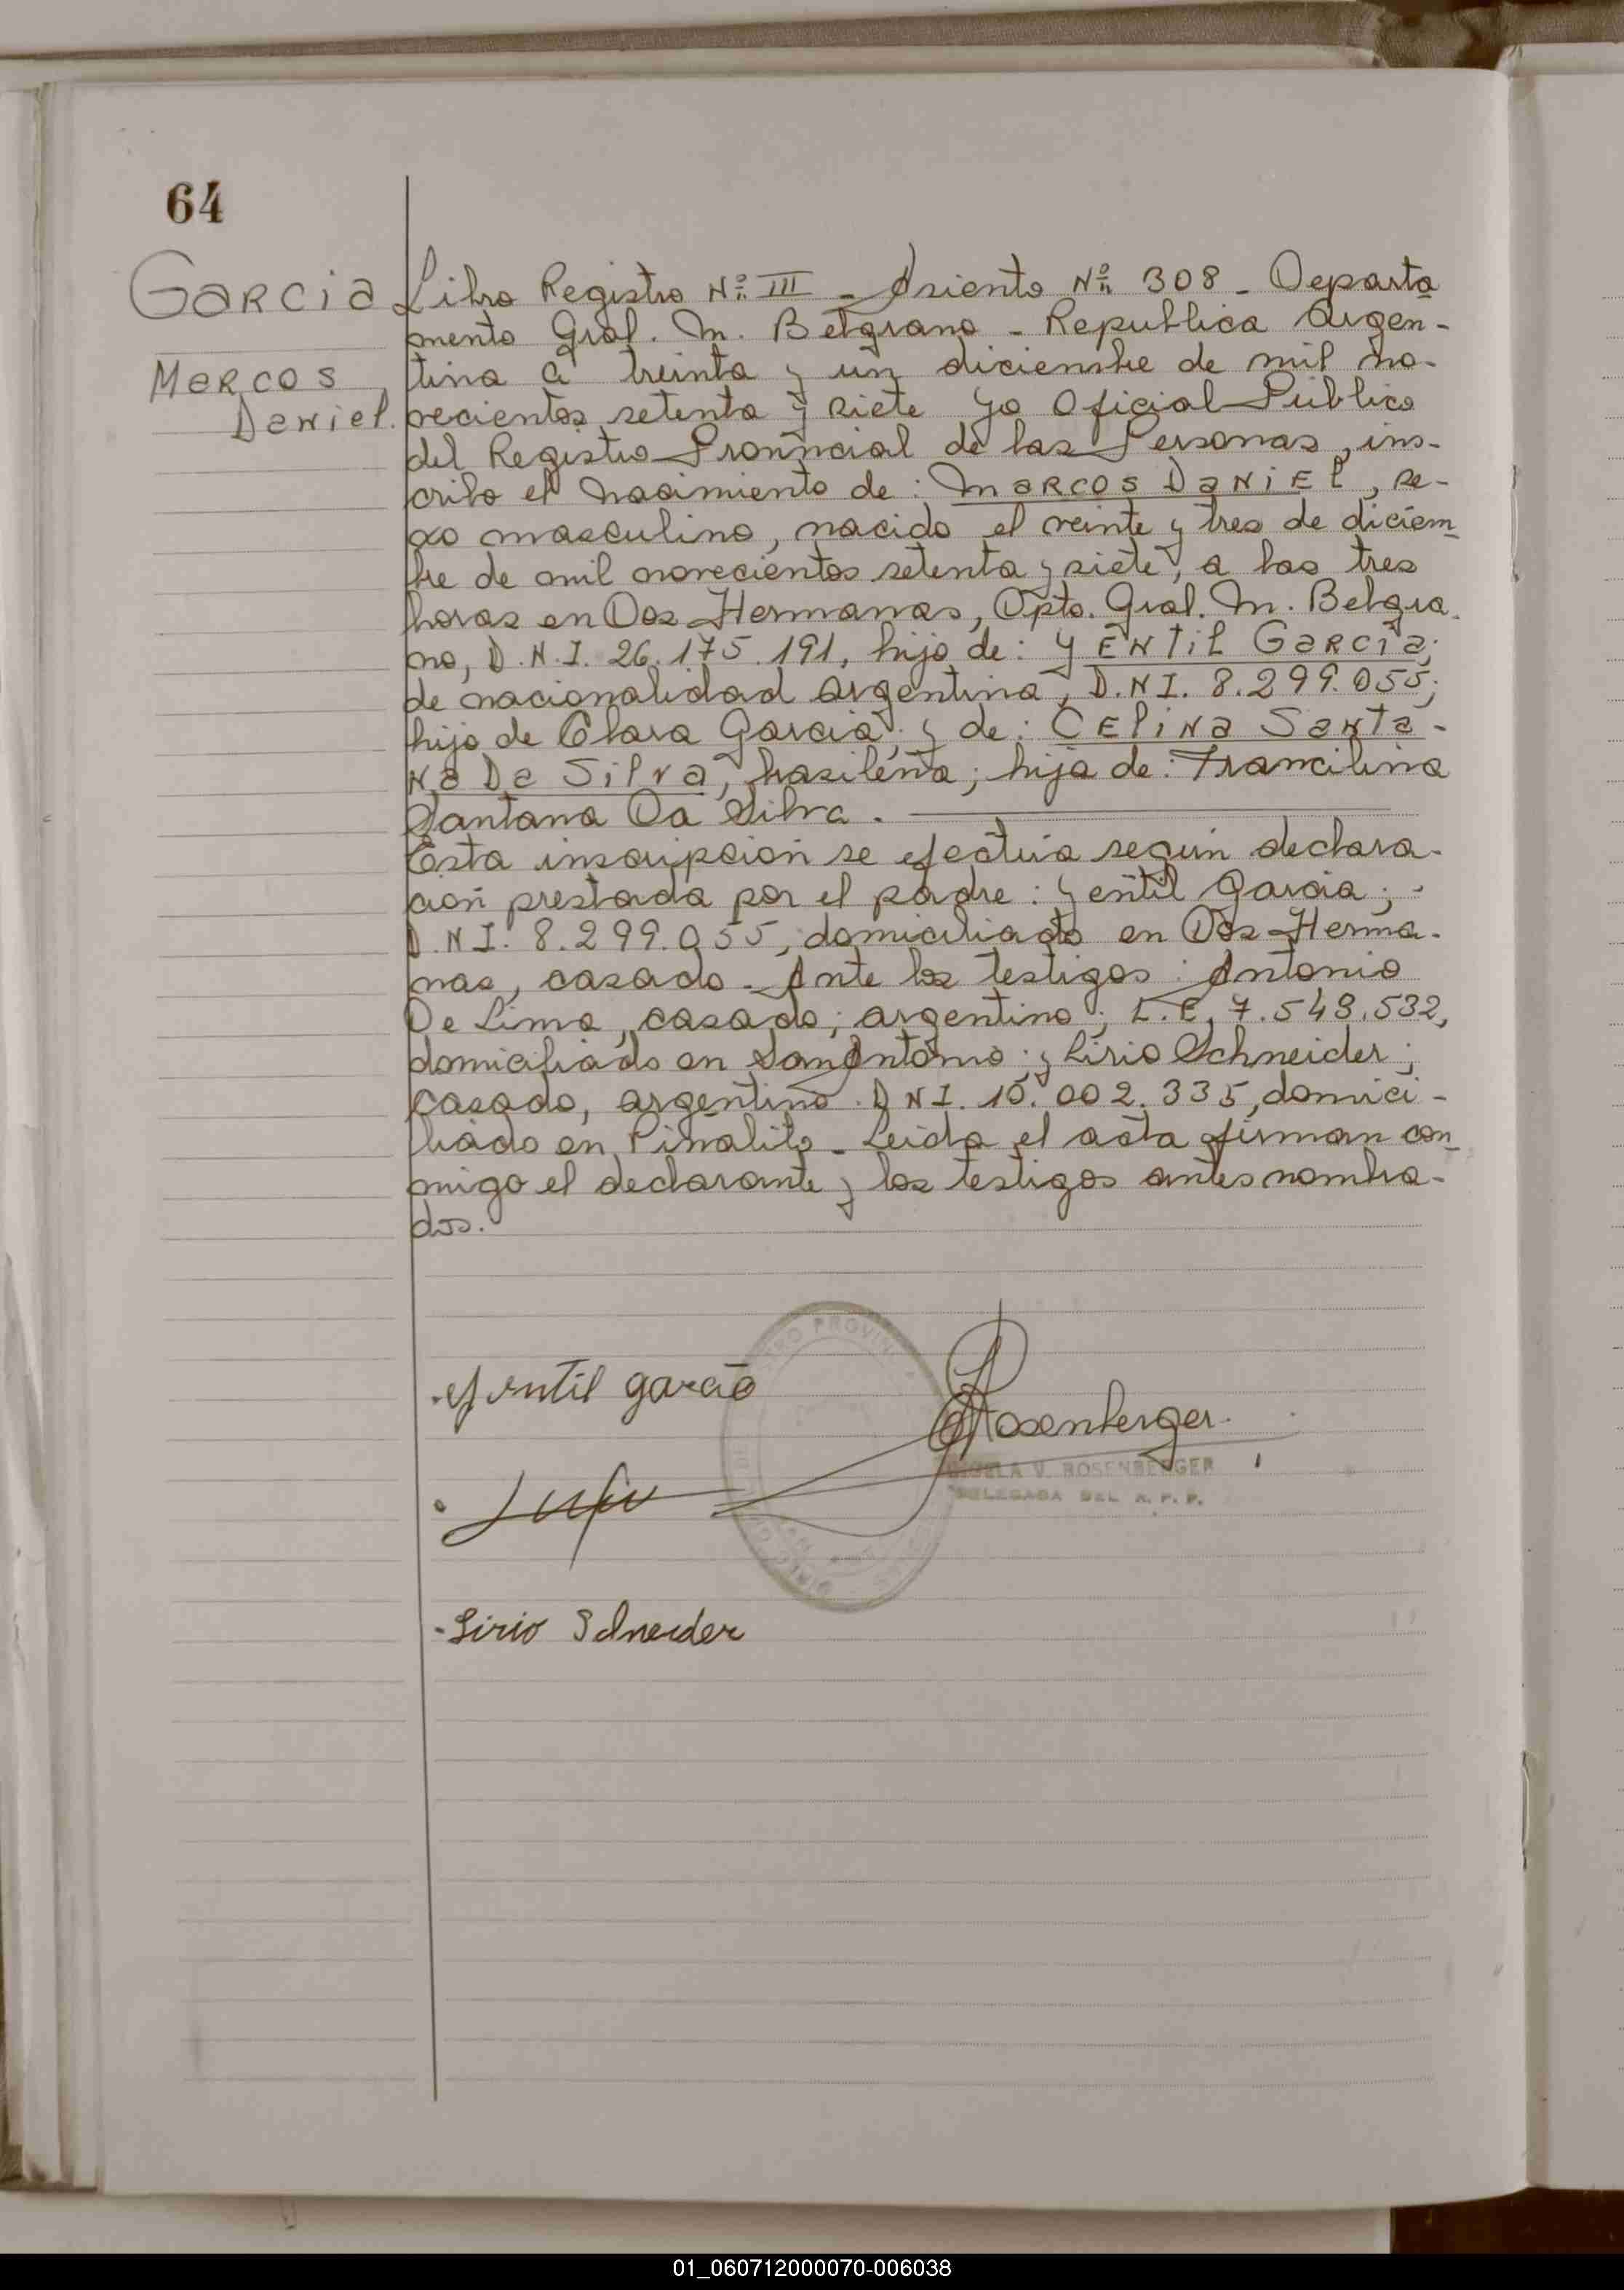 64
Garcia
Marcos
Daniel.
Libro Registro Nº III - Asiento Nº 308 - Departa
mento Gral. M. Belgrano - Republica Argen-
tina a treinta y un diciembre de mil no-
vecientos setenta y siete yo Oficial Público
del Registro Provincial de las Personas, ins-
cribo el Nacimiento de: Marcos Daniel, se-
xo masculino, nacido el veinte y tres de diciem-
bre de mil novecientos setenta y siete, a las tres
horas en Dos Hermanas, Dpto. Gral. M. Belgra-
no, D.N.I. 26.175.191, hijo de: Yentil Garcia;
de nacionalidad argentina, D.N.I. 8.299.055;
hijo de Clara Garcia; y de: Celina Santa-
na Da Silva, brasileña; hija de: Francilina
Santana Da Silva.
Esta inscripción se efectúa según declara-
ción prestada por el padre: Yentil Garcia;
D.N.I. 8.299.055, domiciliado en Dos Herma-
nas, casado. Ante los testigos: Antonio
De Lima, casado; argentino; L.E. 7.548.532,
domiciliado en San Antonio; y Lirio Schneider;
casado, argentino. DNI. 10.002.335, domici-
liado en Piñalito - Leida el acta firman con-
migo el declarante y los testigos antes nombra-
dos.
Gentil garcia
Rosenberger
V. ROSENBERGER
DELEGADA DEL R. P. P.
PROVIN
Lirio Schneider
01_060712000070-006038